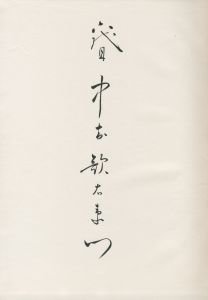 中村歌右衛門